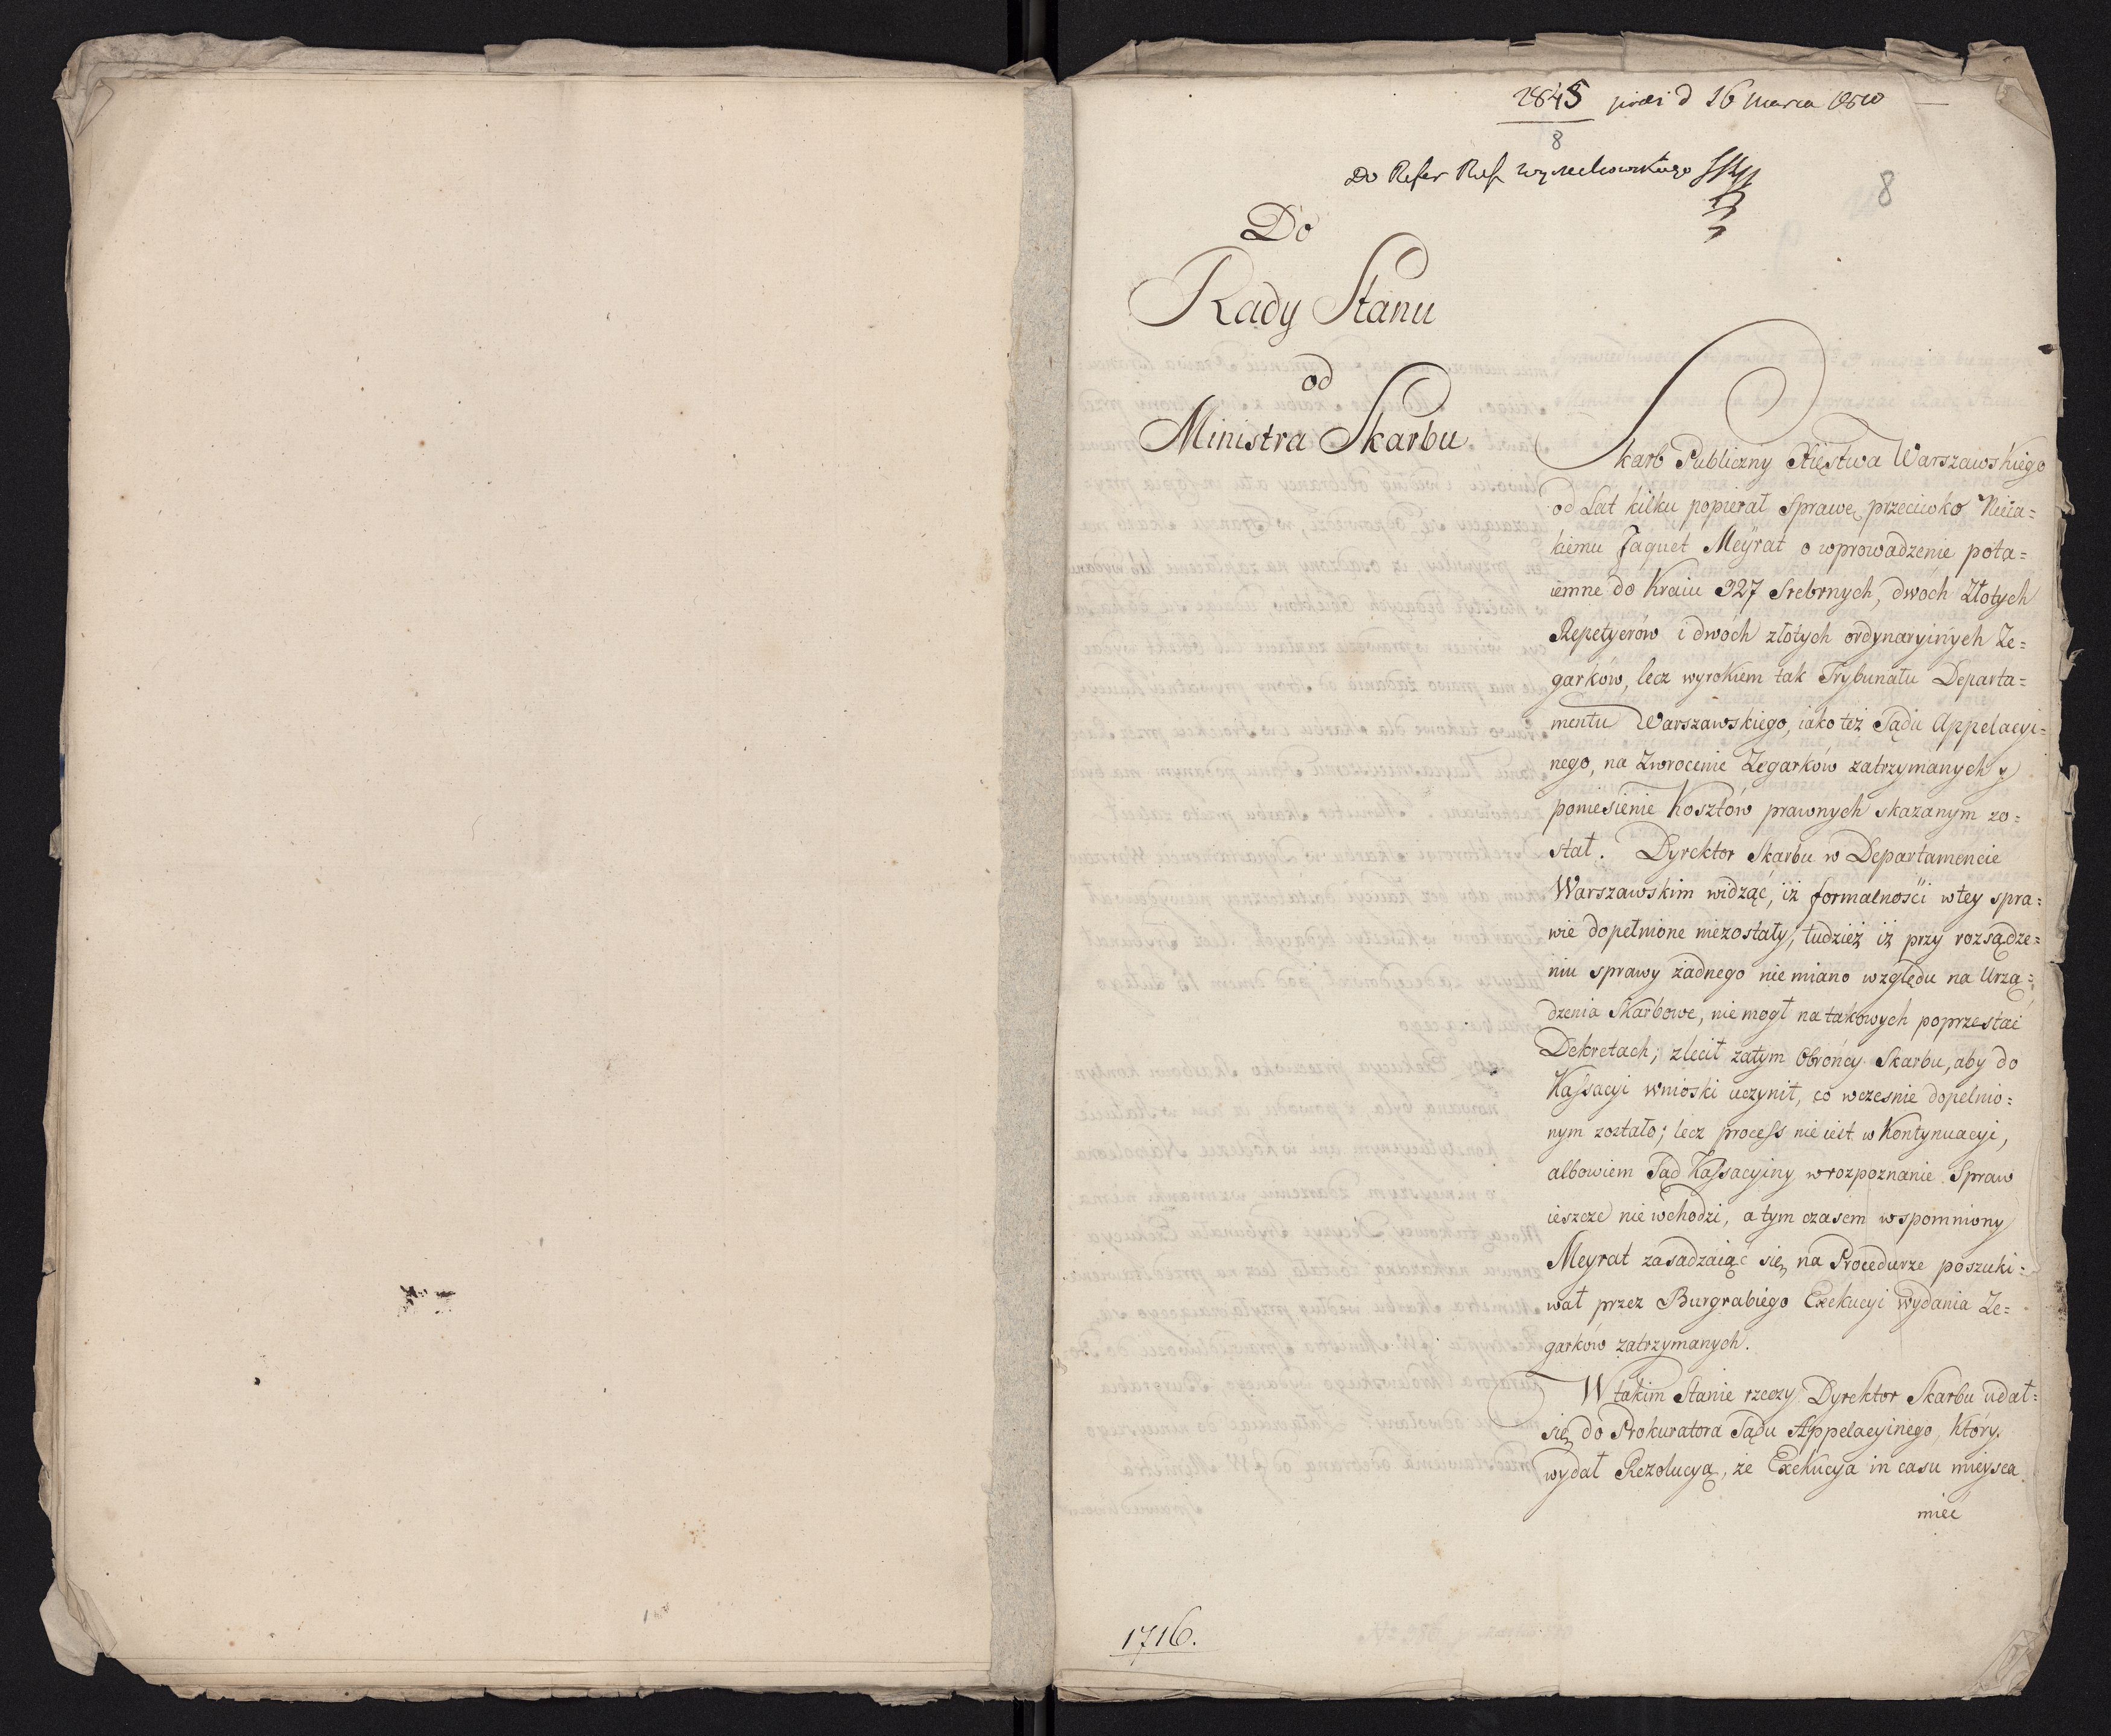 2845 d 16 marca 1810
8
Do Refer Wyczechowskiego
8
Do
Rady Stanu
od
Ministra Skarbu
Skarb Publiczny Xięstwa Warszawskiego
od Lat kilku popierał Sprawę przeciwko Nieia=
kiemu Jaquet Meyrat o wprowadzenie pota=
iemne do Kraiu 327 Srebrnych, dwoch Złotych
Repetyerów i dwóch złotych ordynaryinych Ze=
garków, lecz wyrokiem tak Trybunału Departa=
mentu Warszawskiego, iako też Sądu Appelacyi=
nego, na Zwrocenie Zegarków zatrzymanych y
poniesienie Kosztów prawnych skazanym zo=
stał. Dyrektor Skarbu w Departamencie
Warszawskim widząc, iż formalności w tey spra=
wie dopełnione niezostały, tudzież iż przy rozsądze=
niu sprawy żadnego nie miano względu na Urzą=
dzenia Skarbowe, nie mogł na takowych poprzestać
Dekretach; zlecił zatym Obrońcy Skarbu, aby do
Kassacyi wnioski uczynił, co wczesnie dopełnio=
nym zostało; lecz process nie iest w Kontynuacyi,
albowiem Sąd Kassacyiny w rozpoznanie Spraw
ieszcze nie wchodzi, a tym czasem wspomniony
Meyrat zasadzaiąc się na Procedurze poszuki=
wał przez Burgrabiego Exekucyi wydania Ze=
garków zatrzymanych.
W takim Stanie rzeczy Dyrektor Skarbu udał=
się do Prokuratora Sądu Appelacyinego, który
wydał Rezolucyą, że Exekucya in casu mieysca
mieć
1716.